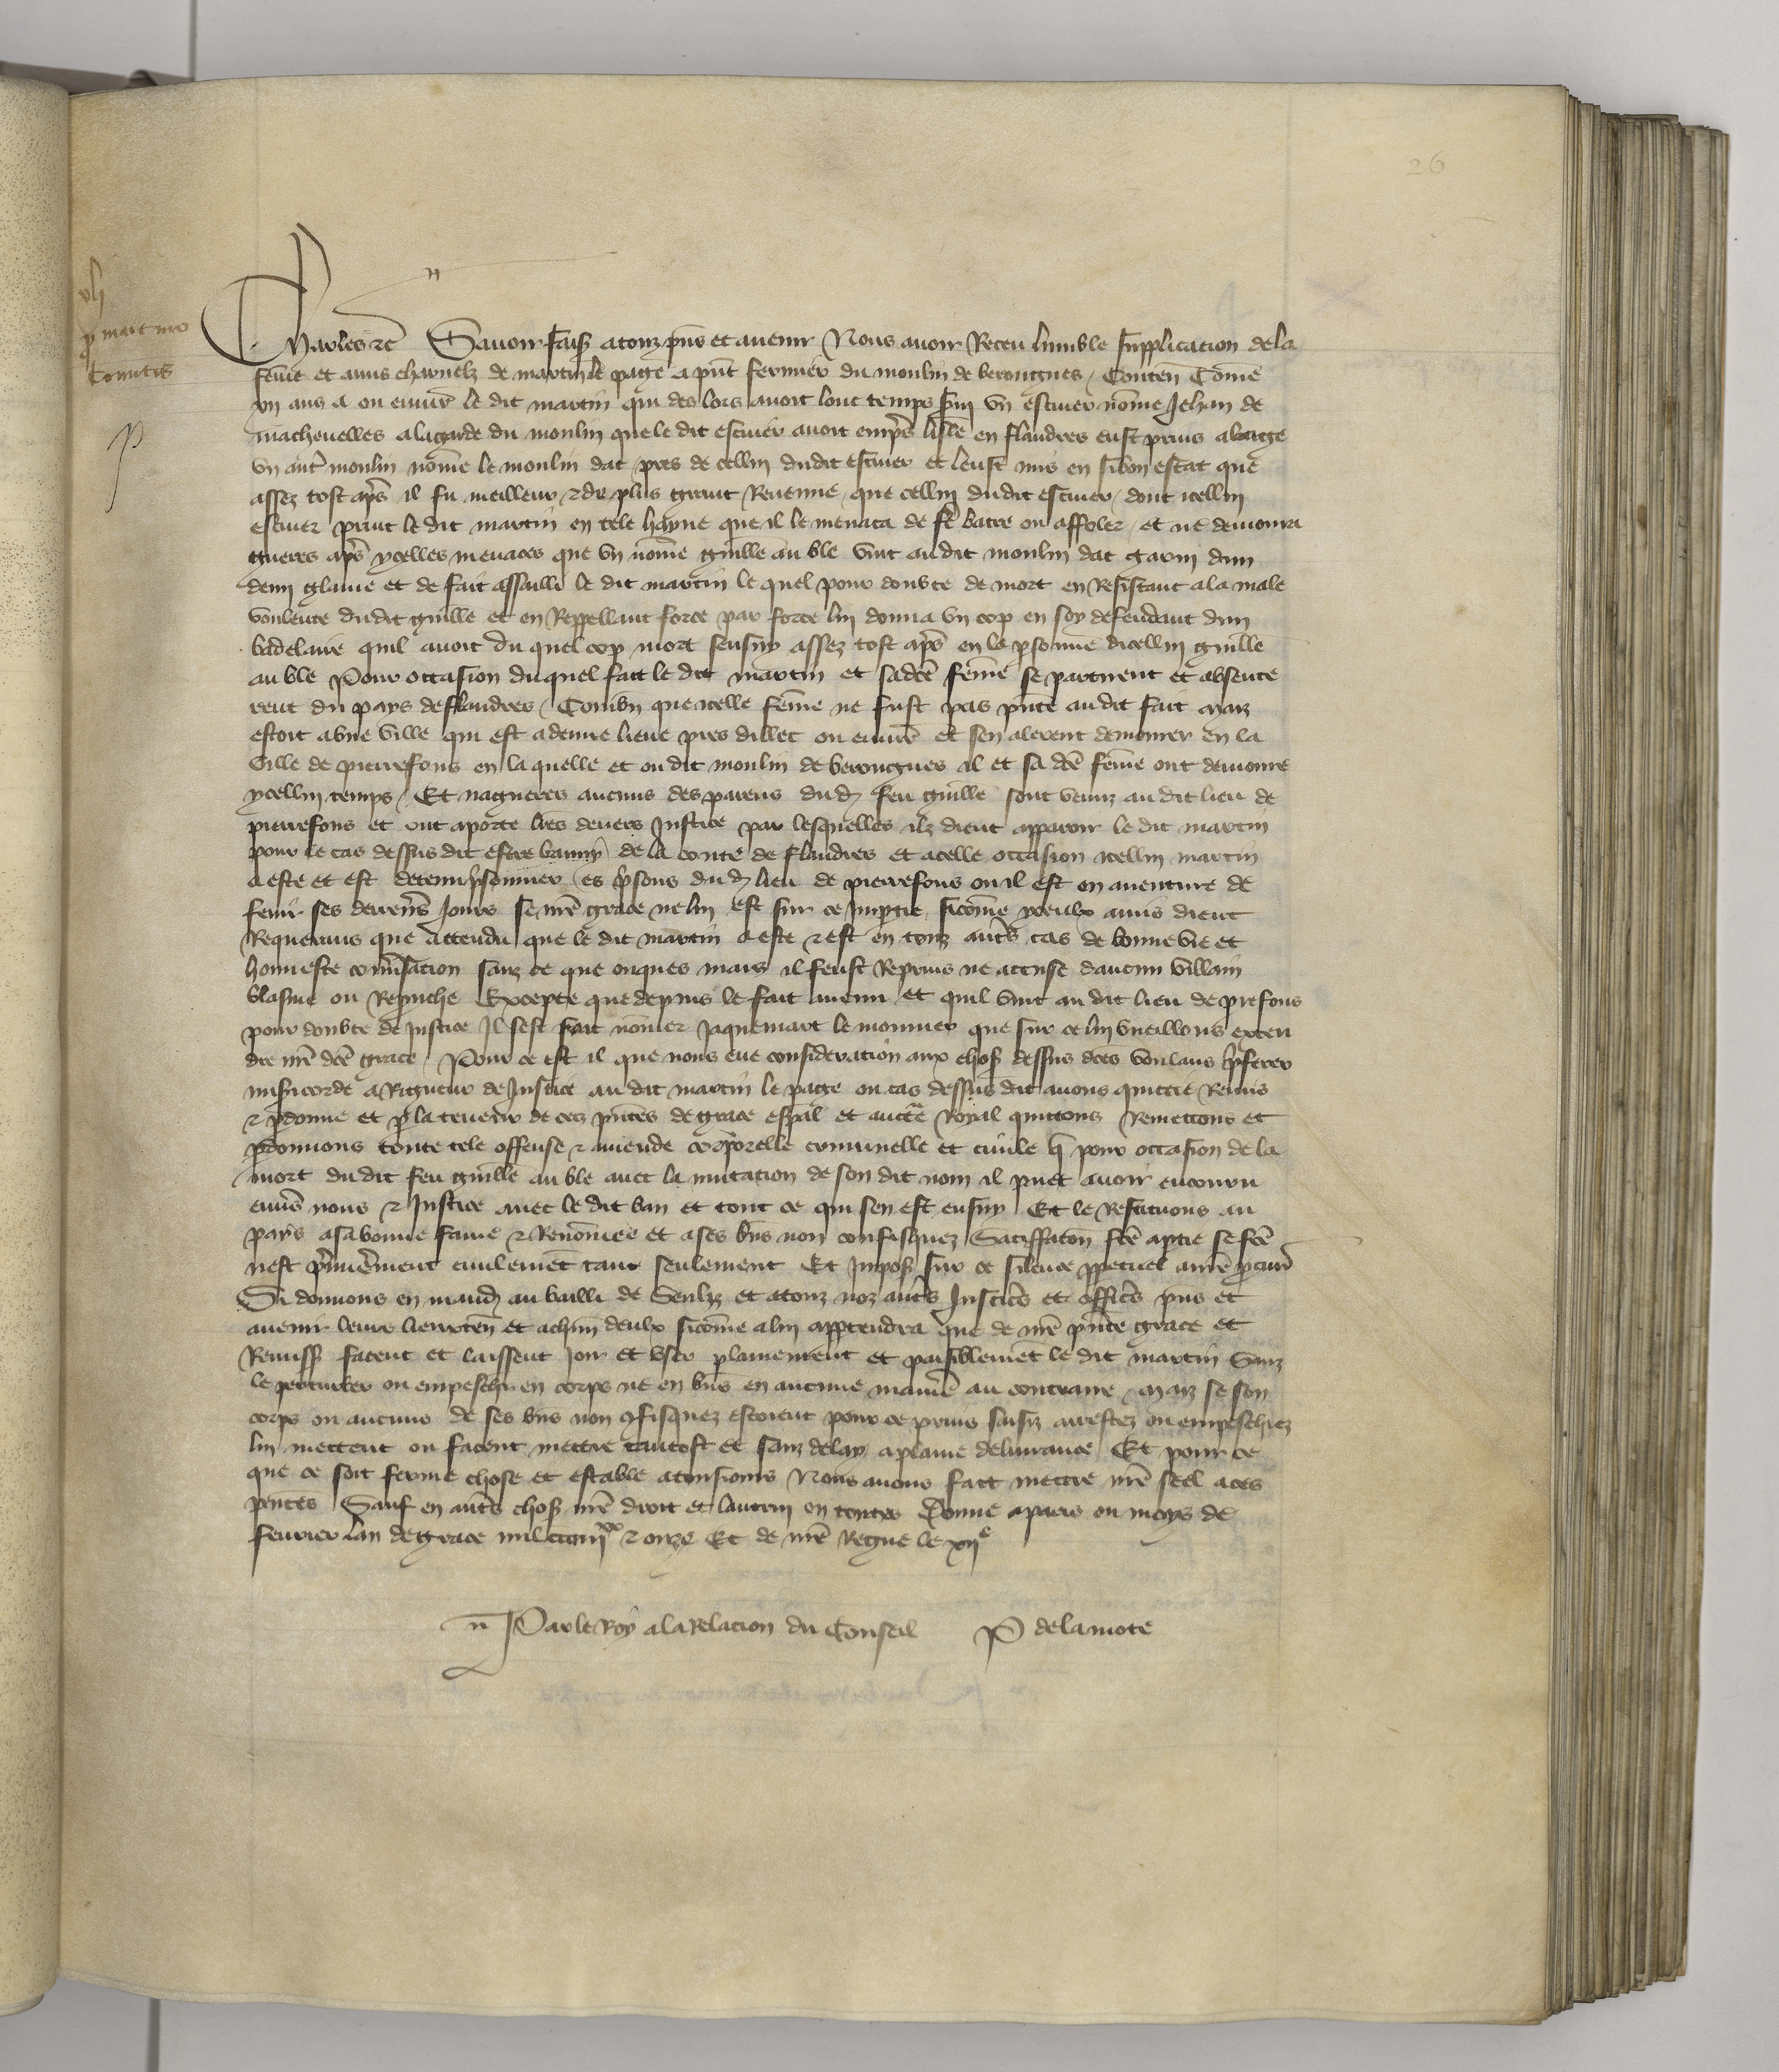 26
vij
p martino
Comitis
Charles etc Savoir faisons a touz pns et avenir Nous avoir Receu lumble supplicacion de la
feme et amis charnelz de martin le page a pnt fermier du moulin de berongnes / Conten Come
xij ans a ou envir le dit martin qui des lors avoit lonc temps servi un escuier nome Jehan de
machevelles a la garde du moulin que le dit escuier avoit empres lisle en flandres eust prins a louage
un autre moulin nome le moulin dat pres de cellui dudit escuier et leust mis en si bon estat que
assez tost apres il fu meilleur et de plus grant Revenue que cellui dudit escuier / dont icellui
escuier print le dit martin en tele hayne que il le menaca de fe batre ou affoler / et ne demoura
gueres apres ycelles menaces que un nome guille au ble vint au dit moulin dat garni dun
demi glaive et de fait assailli le dit martin le quel pour doubte de mort en Resistant a la male
voulente dudit guille et en Reppellant force par force lui donna un cop en soy defendant dun
badelaire quil avoit du quel cop mort sensuy assez tost apres en la psonne dicellui guille
au ble Pour occasion duquel fait le dit martin et sa dce feme se partirent et absente
rent du pays de flandres / Combn que icelle feme ne fust pas pnte au dit fait maiz
estoit a une ville qui est a demie lieue pres dillec ou envir et sen alerent demourer en la
ville de pierrefons en la quelle et ou dit moulin de berongnes il et sa dce feme ont demoure
ycellui temps / Et nagueres aucuns des parens dud feu guille sont venuz au dit lieu de
pierrefons et ont aporte lres devers Justice par lesquelles ilz dient apparoir le dit martin
pour le cas dessus dit estre banny de la conte de flandres et a celle occasion icellui martin
a este et est detenu prisonnier es prisons dud lieu de pierrefons ou il est en aventure de
fenir ses derreniers Jours se nre grace ne lui est sur ce Impartie sicome yceulx amis dient
Requerans que attendu que le dit martin a este et est en touz autres cas de bonne vie et
honneste conversacion sanz ce que onques mais il feust Reprins ne accuse daucun villain
blasme ou Reprouche Excepte que depuis le fait avenu et quil vint au dit lieu de prefons
pour doubte de Justice Il sest fait nomer Jaquemart le monnier que sur ce lui vueillons exten
dre nre dce grace / Pour ce est il que nous eue consideracion aux choses dessus dces voulans preferer
misericorde a Rigueur de Justice au dit martin le page ou cas dessus dit avons quictie Remis
et pdonne et p la teneur de ces pntes de grace espal et aucte Royal quictons Remectons et
pdonnons toute tele offense et amende corporelle criminelle et civile que pour occasion de la
mort dudit feu guille au ble avec la mutacion de son dit nom il puet avoir encouru
envers nous et Justice avec le dit ban et tout ce qui sen est ensuy Et le Restituons au
pays a sa bonne fame et Renomee et a ses bns non confisquez Satiffacon fce a ptie se fce
nest premierement civilement tant seulement Et Imposons sur ce silence ppetuel a nre pcur
Si donnons en mand au bailli de Senliz et a touz noz autres Justices et offices pns et
avenir leurs lieuxten et a chun deulx sicome a lui apptendra que de nre pnte grace et
Remission facent et laissent Joir et user plainement et paisiblement le dit martin Sanz
le perturber ou empescher en corps ne en bns en aucune maniere au contraire / maiz se son
corps ou aucuns de ses bns non confisquez estoient pour ce prins saisiz arrestez ou empeschiez
lui mettent ou facent mettre tantost et sanz delay a plaine delivrance / Et pour ce
que ce soit ferme chose et estable a tousjours Nous avons fait mettre nre seel a ces
pntes Sauf en autres choses nre droit et lautrui en toutes Donne a paris ou moys de
fevrier lan de grace mil ccc iiij xx et onze Et de nre Regne le xij e
Par le Roy a la Relacion du Conseil P de la mote